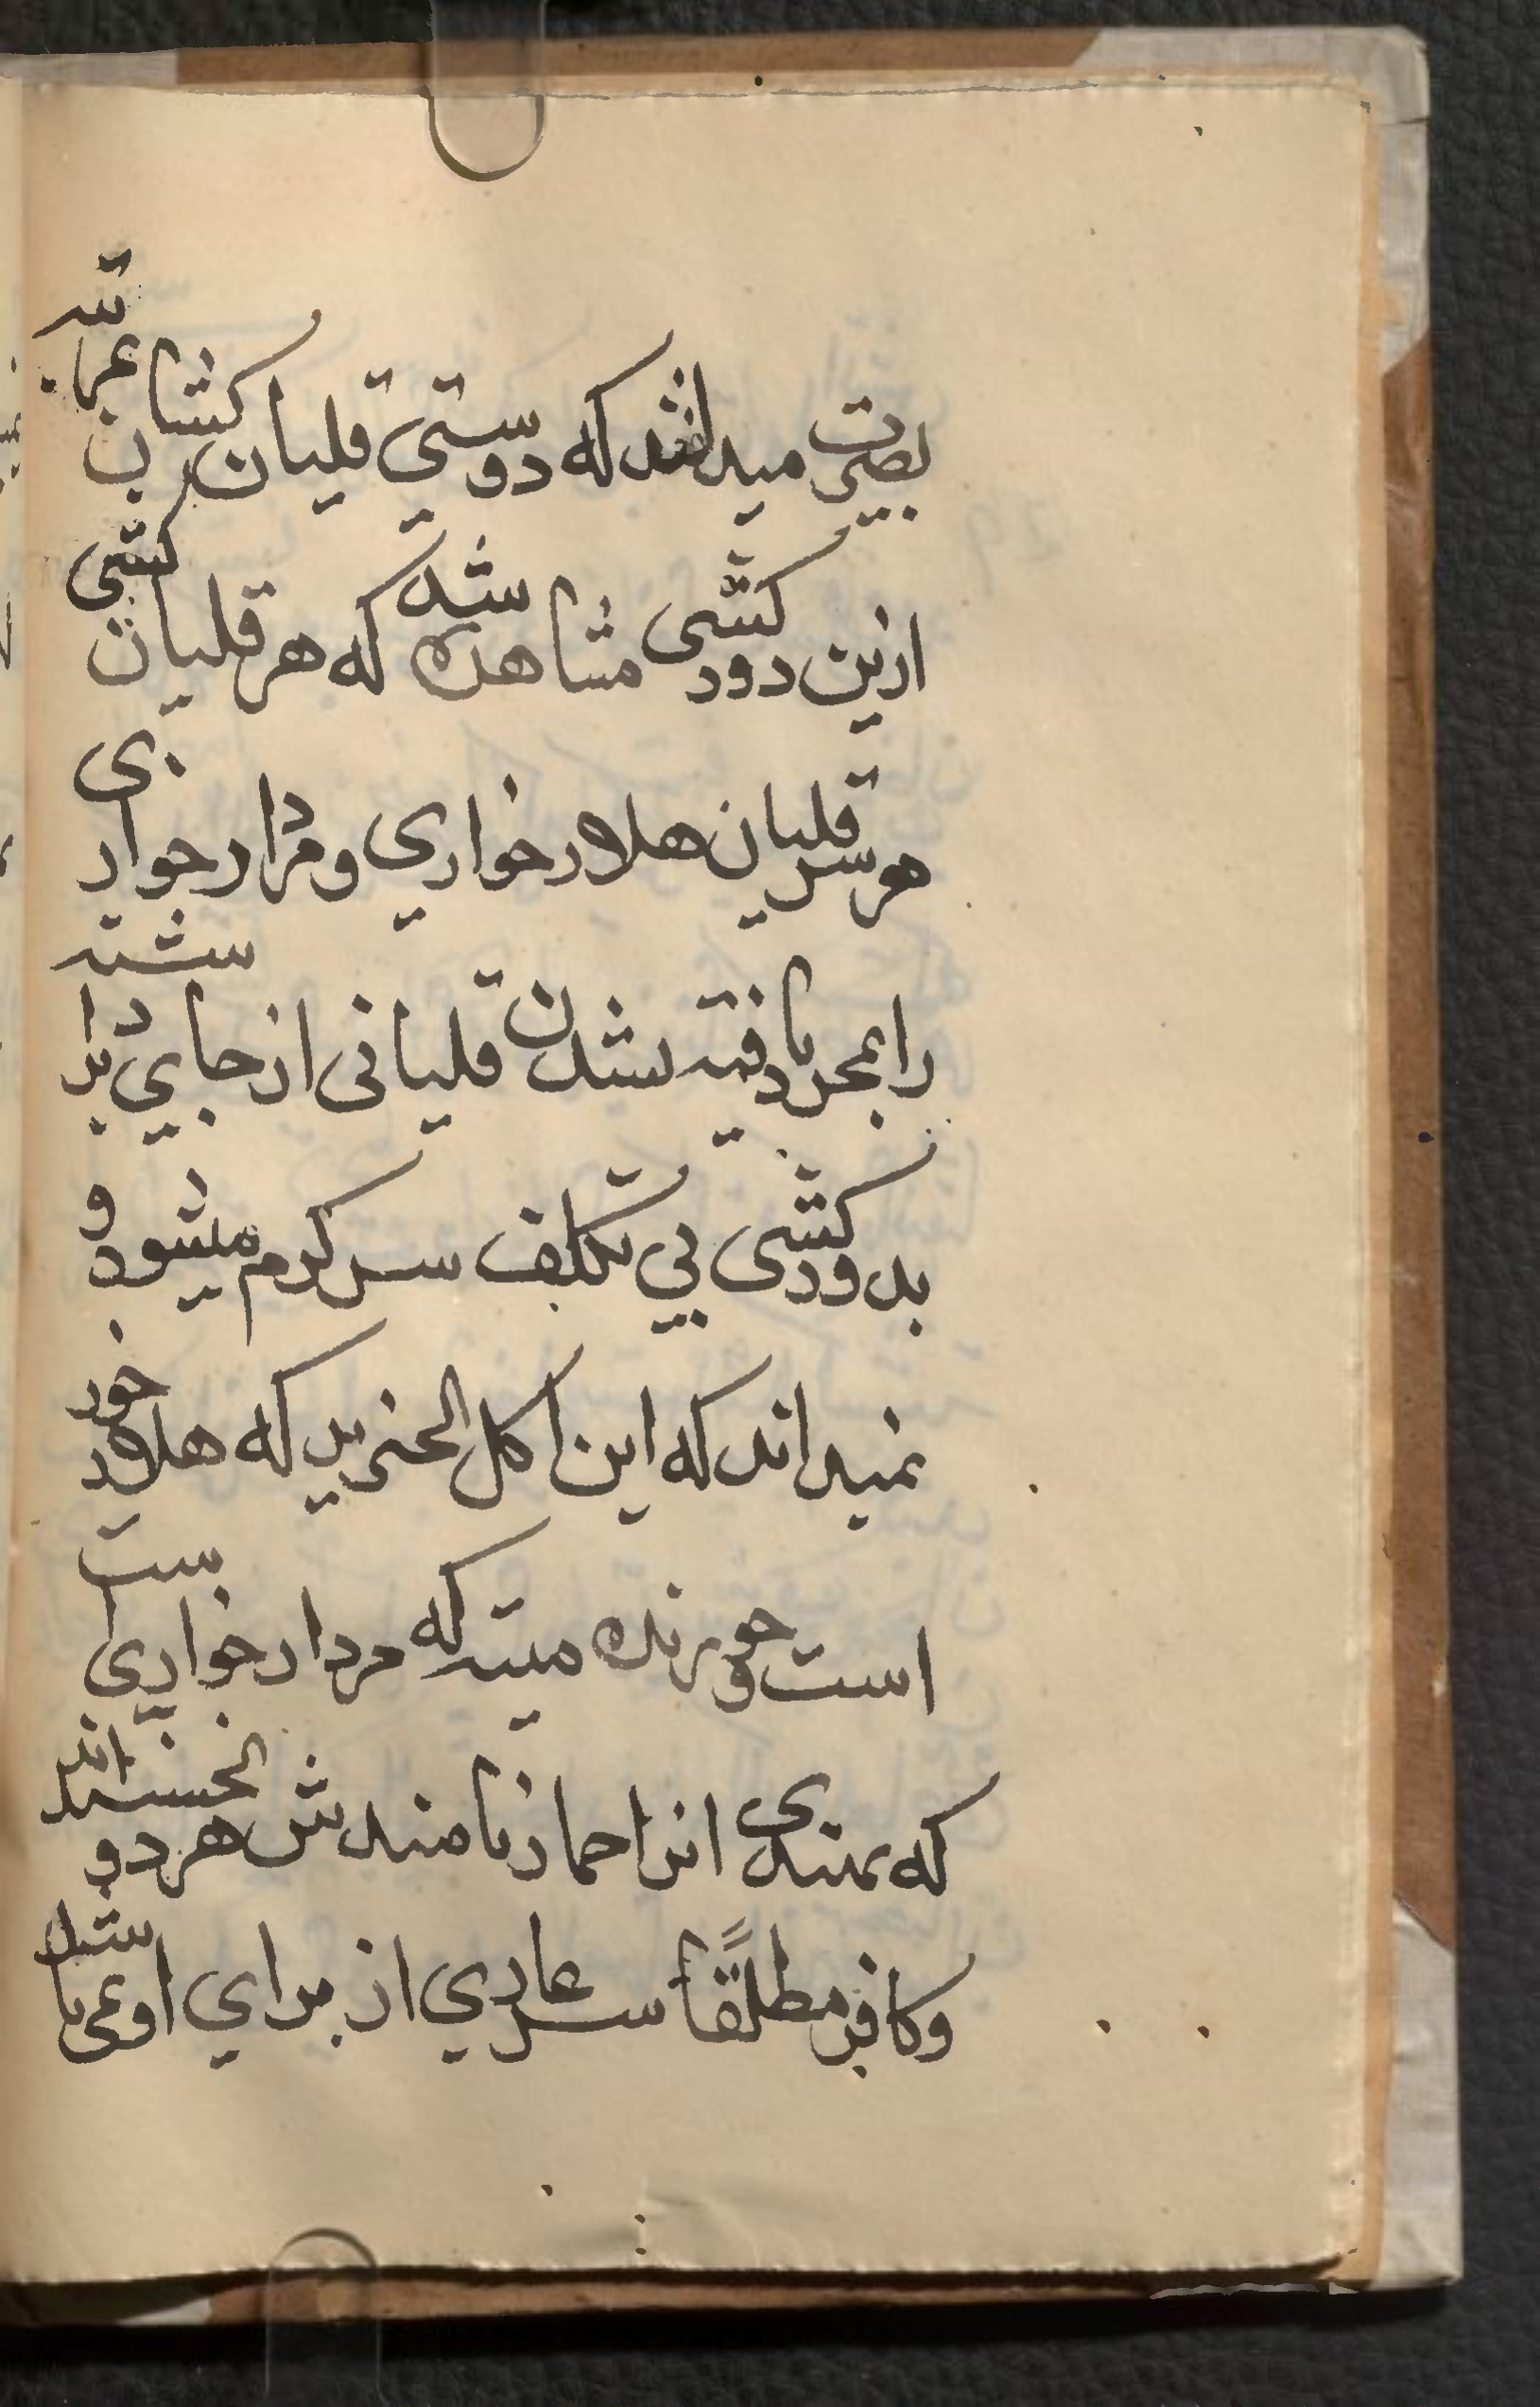 بصیرت میدانند که دوستی قلیان کشان بمرتبه
ازین دودکشی مشاهده شد که هر قلیان کشی
هر سر قلیان هلاد رخواری و مردار جواری
را بمجرد یافته شدن قلیانی از جای برداشته
بدودکشی بی تکلف سرکرم میشود و
نمیداند که این اکل الخنزیر که هلاد خود
است و خورنده میته که مردار خواریست
که بمندی انرا حمارنامندش هر دو نجس‌اند
وکافر مطلقاً سر عاری از برای او نمی باشد